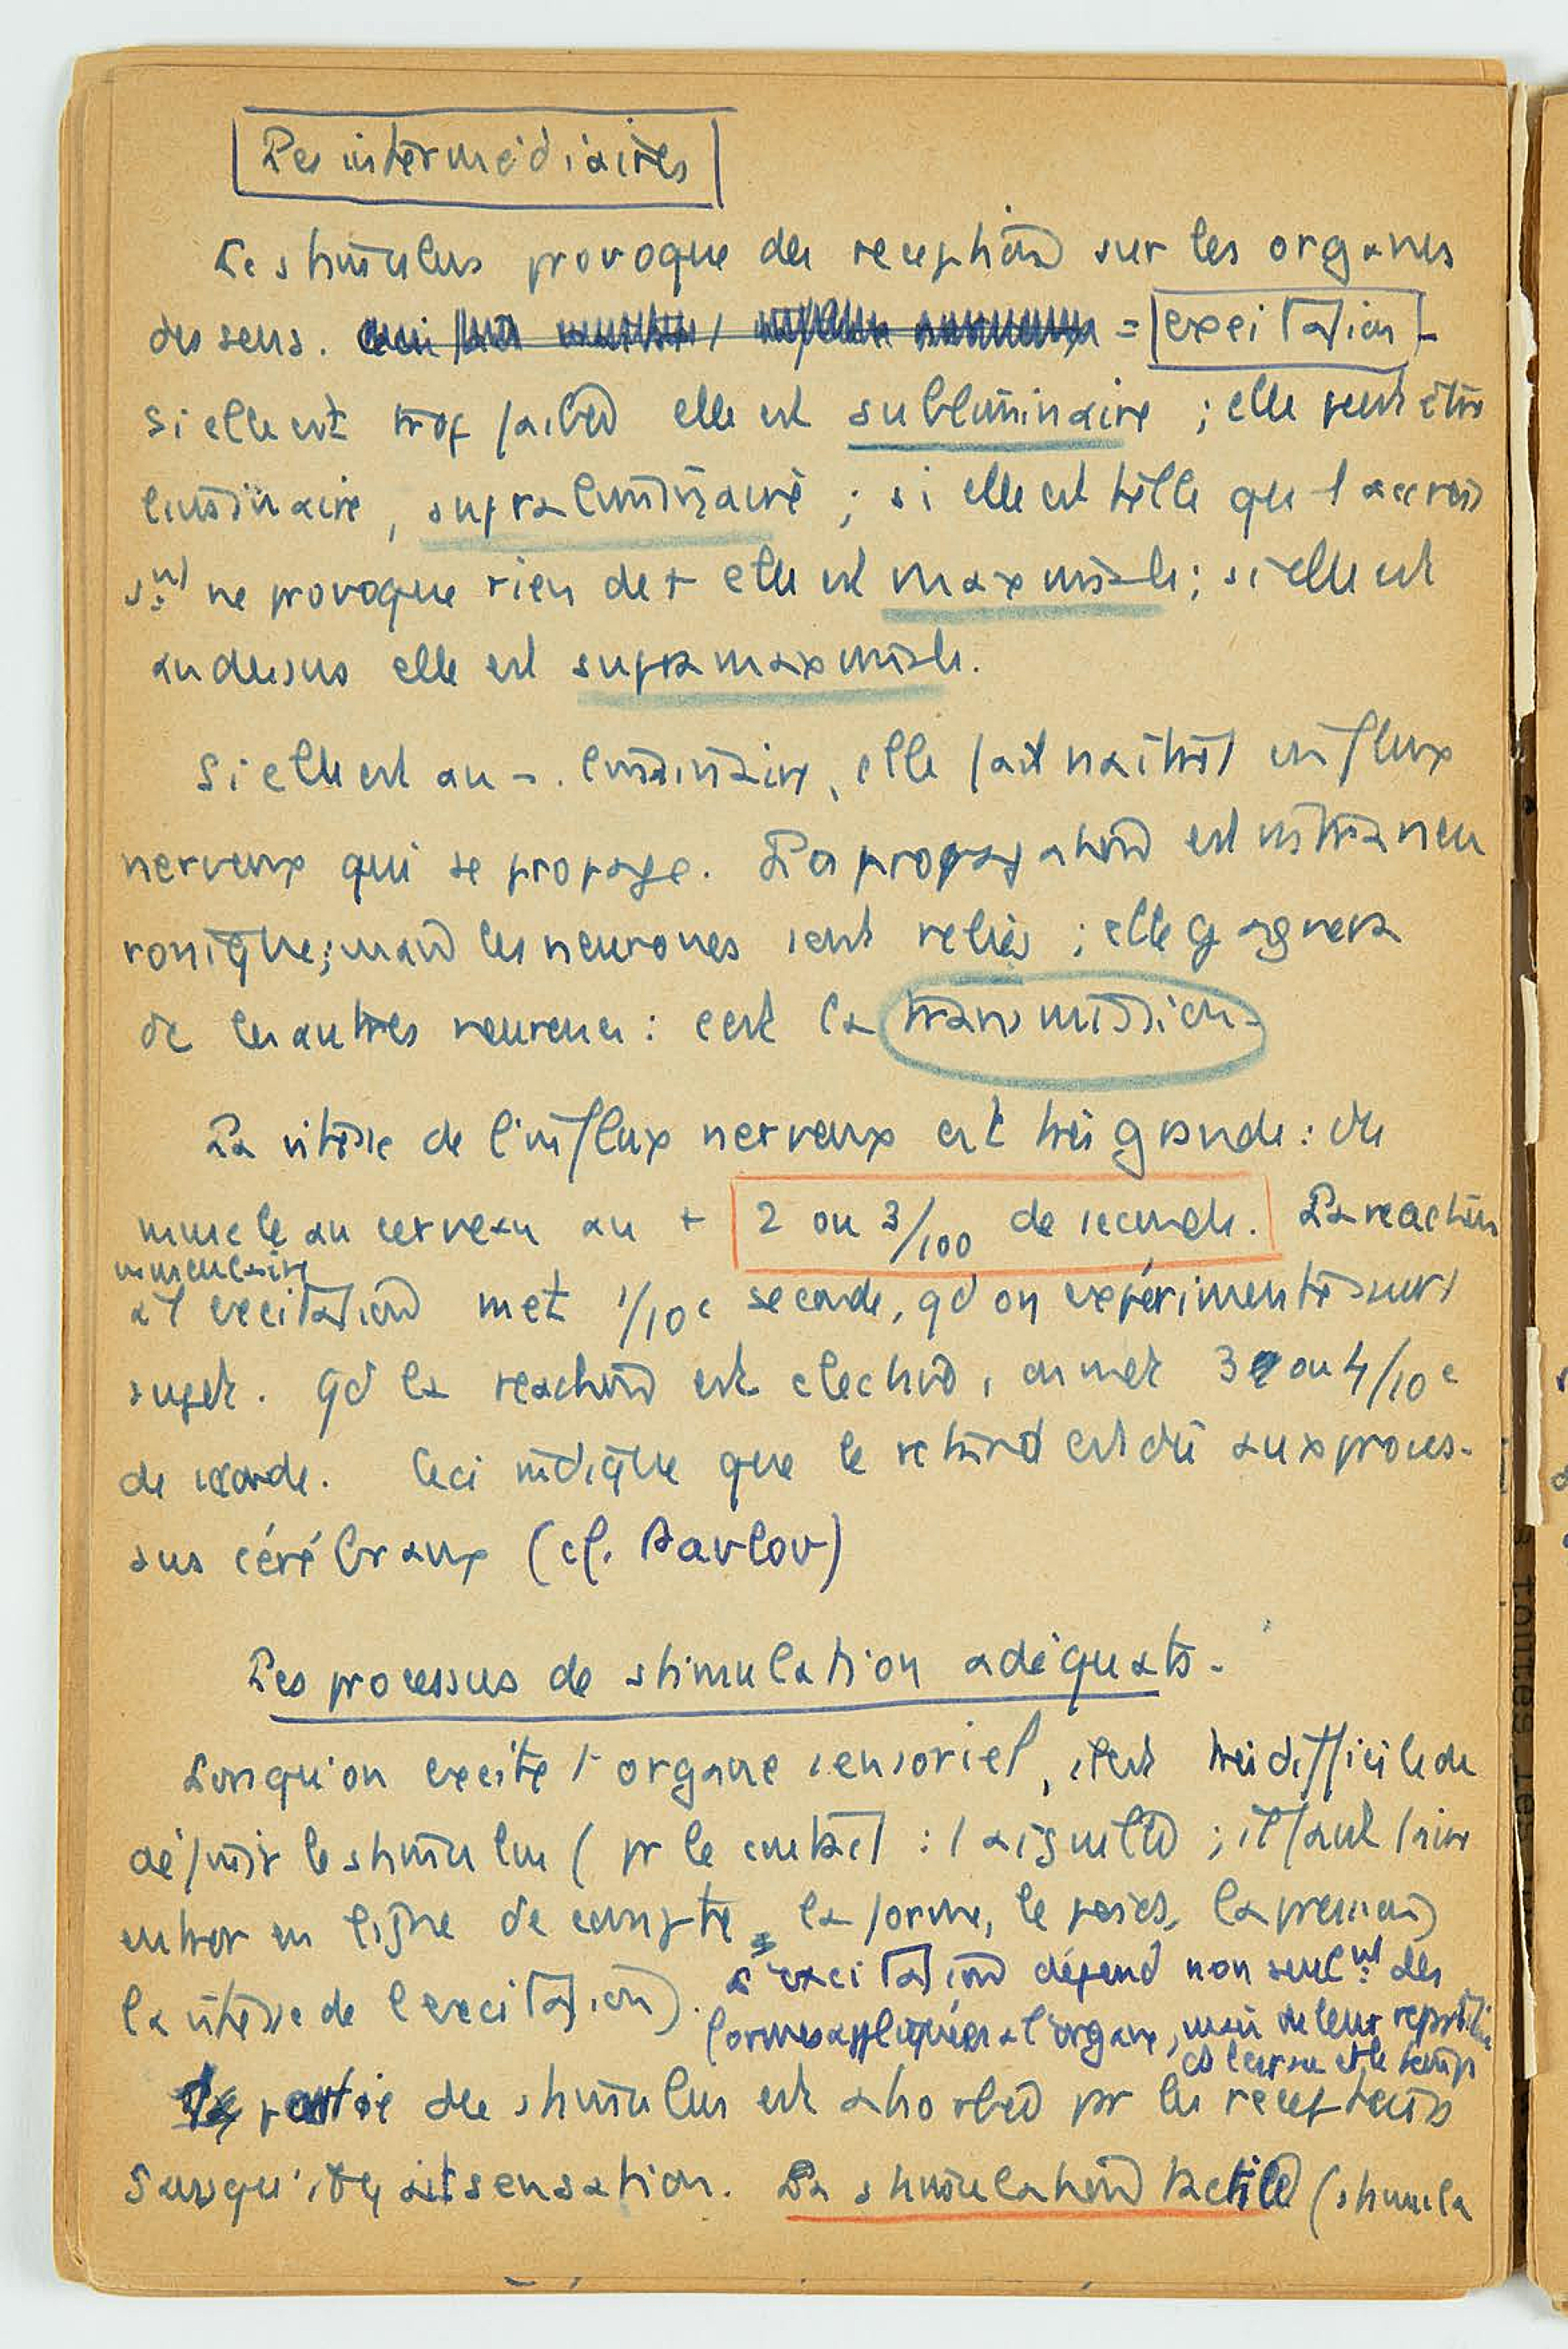 Les intermédiaires
Le stimulus provoque des reception sur les organes
des sens. = excitation -
si elle est trop faible elle est subliminaire ; elle peut être
liminaire, supraliminaire ; si elle est telle que l'accrois
s.nt ne provoque rien de + elle est maximale ; si elle est
au dessus elle est supramaximale.
Si elle est au -. liminaire, elle fait naître l'influx
nerveux qui se propage. La propagation est intraneu
ronique ; mais les neurones sont reliés ; elle gagnera
de les autres neurones : c'est la transmission
La vitesse de l'influx nerveux est très grande : du
muscle au cerveau au + 2 ou 3/100 de seconde. La reaction
musculaire
à l'excitation met 1/10e seconde, qd on expérimente sur l
sujet. qd la reaction est élective, on met 3 ou 4/10e
de seconde. Ceci indique que le retard est dû aux proces-
sus cérébraux (cf. Pavlov)
Les processus de stimulation adéquats -
Lorsqu'on excite l'organe sensoriel, c'est très difficile de
définir le stimulus ( pr le contact : l'aiguille ; il faut faire
entrer en ligne de compte la forme, le poids, la pression
la vitesse de l'excitation). L'excitation dépend non seul.nt des
formes appliquées à l'organe, mais de leur repartition
ds l'espace et le temps
partie du stimulus est absorbée pr les recepteurs
jusqu'il y ait sensation. La stimulation tactile (stimula